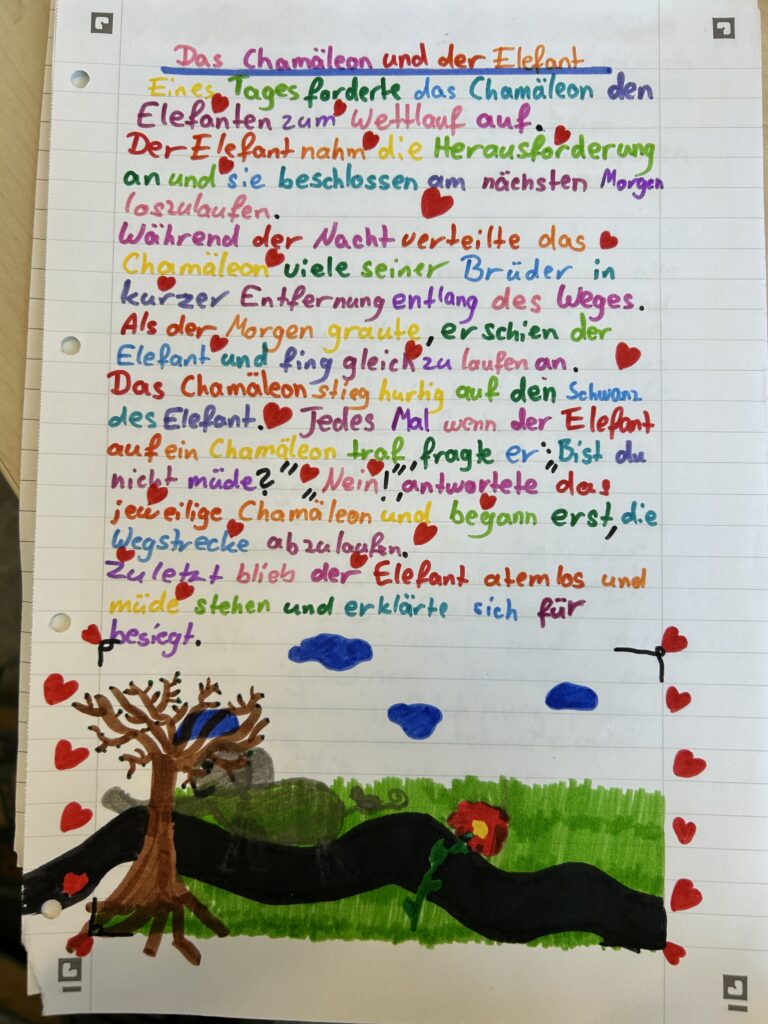 Das Chamäleon und der Elefant
Eines Tages forderte das Chamäleon den
Elefanten zum Wettlauf auf.
Der Elefant nahm die Herausforderung
an und sie beschlossen am nächsten Morgen
loszulaufen.
Während der Nacht verteilte das
Chamäleon viele seiner Brüder in
kurzer Entfernung entlang des Weges.
Als der Morgen graute, erschien der
Elefant und fing gleich zu laufen an.
Das Chamäleon stieg hurtig auf den Schwanz
des Elefant. Jedes Mal wenn der Elefant
auf ein Chamäleon traf, fragte er: „Bist du
nicht müde?" „Nein!", antwortete das
jeweilige Chamäleon und begann erst, die
Wegstrecke abzulaufen.
Zuletzt blieb der Elefant atemlos und
müde stehen und erklärte sich für
besiegt.